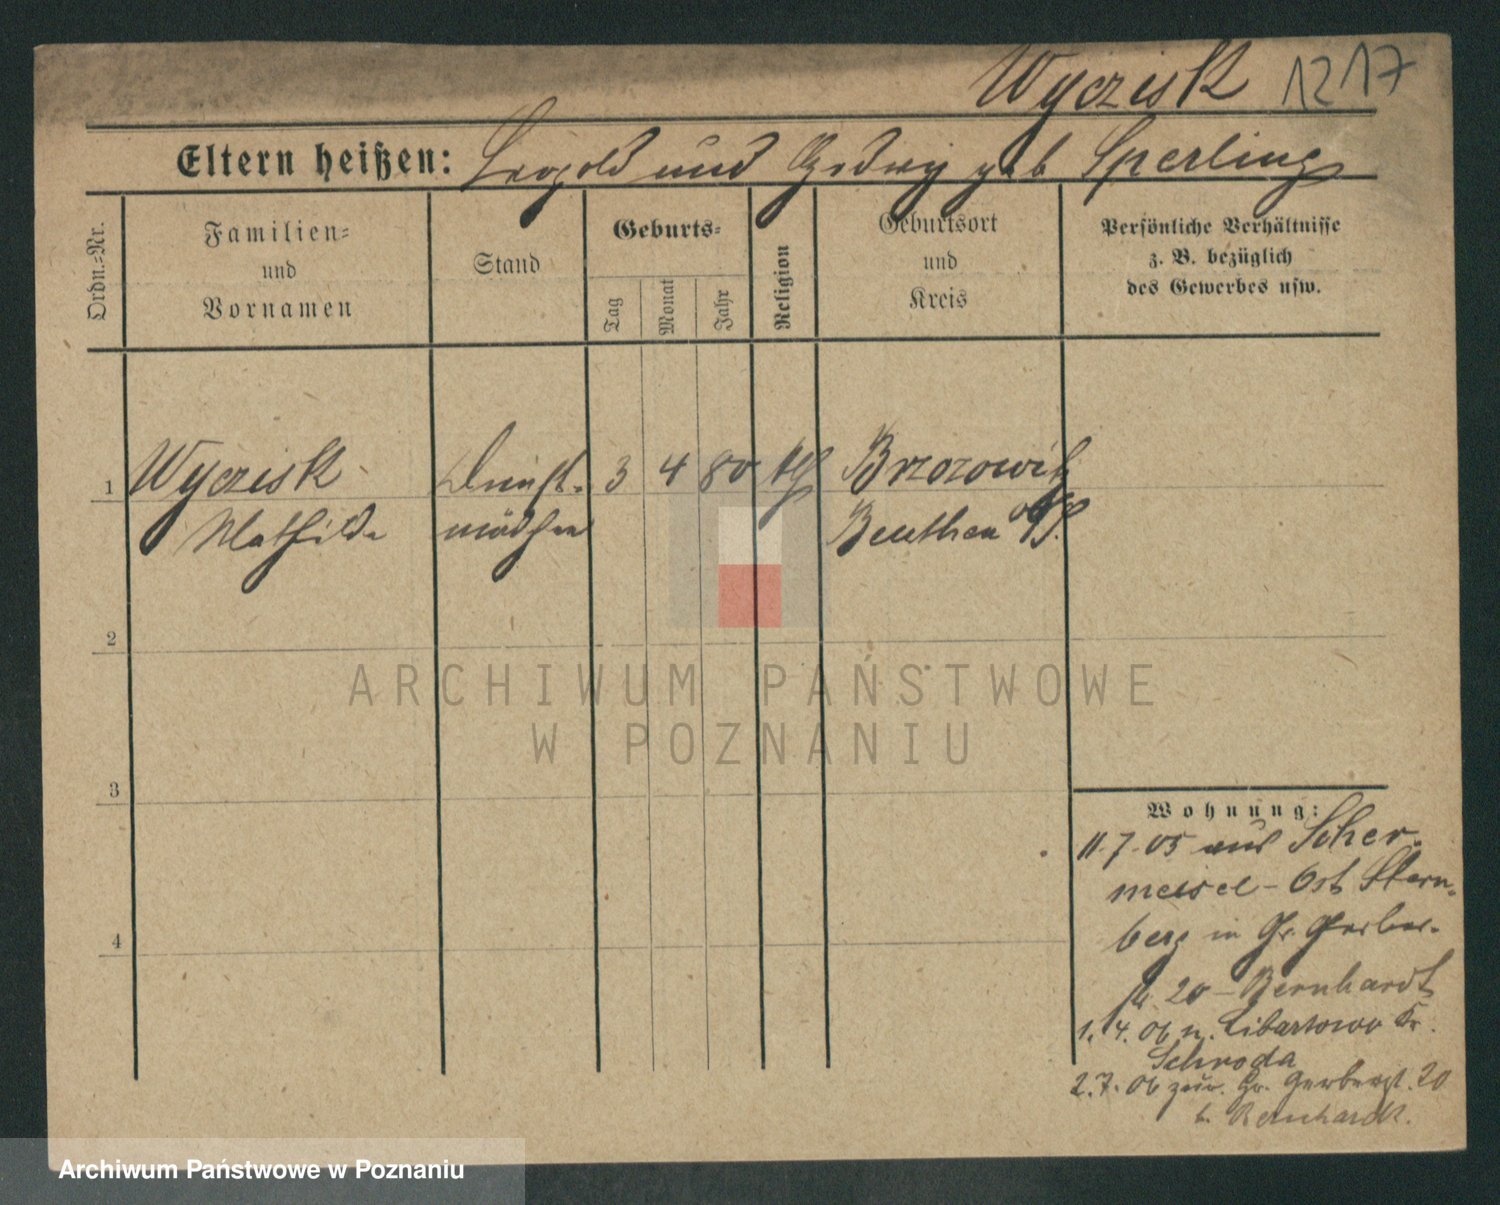 Wyczisk 1217
Eltern heißen: Leopold und Hedwig geb Sperling
Ordn.=Nr.
Familien=
und
Vornamen
Stand
Geburts=
Tag
Monat
Jahr
Religion
Geburtsort
und
Kreis
Persönliche Verhältnisse
z. B. bezüglich
des Gewerbes usw.
1 Wyczisk Dienst- 3 4 80 kth Brzozowitz
Mathilde mädchen Beuthen O/S.
2
3
4
Wohnung:
11.7.05 aus Scher-
meisel - Ost Stern-
berg in Gr. Gerber-
str. 20 - Bernhardt
1.4.06 n. Libartowo Kr.
Schroda
2.7.06 zur. Gr. Gerberst. 20
b. Bernhardt.
ARCHIWUM PAŃSTWOWE
W POZNANIU
Archiwum Państwowe w Poznaniu